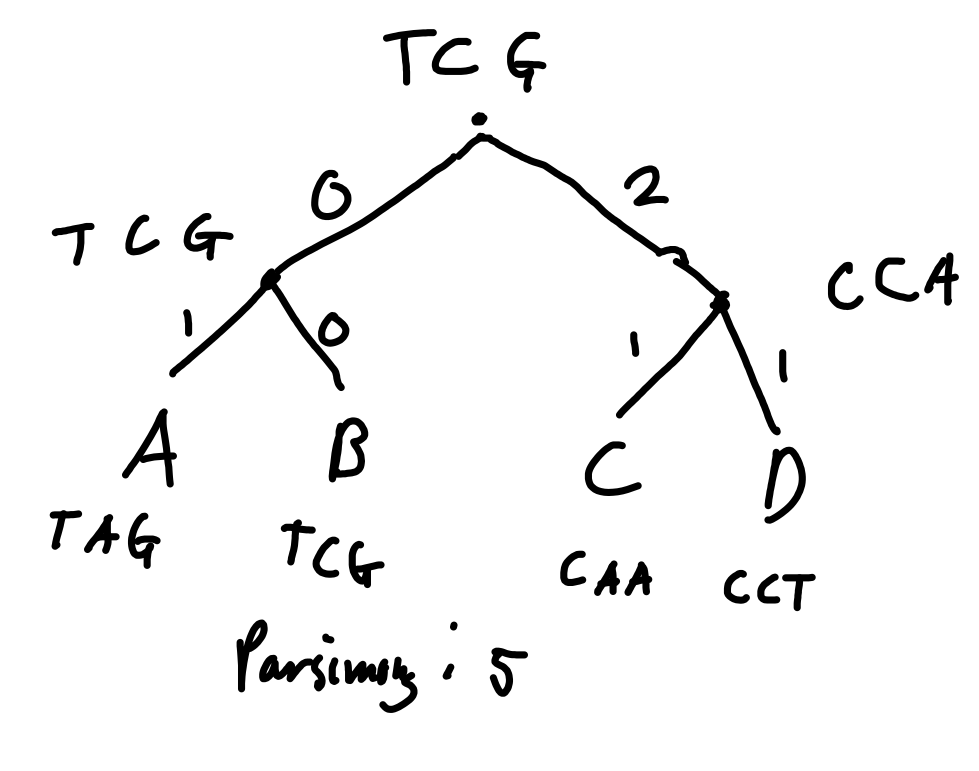 TCG
0 2
TCG CCA
1 0 1 1
A B C D
TAG TCG CAA CCT
Parsimony: 5